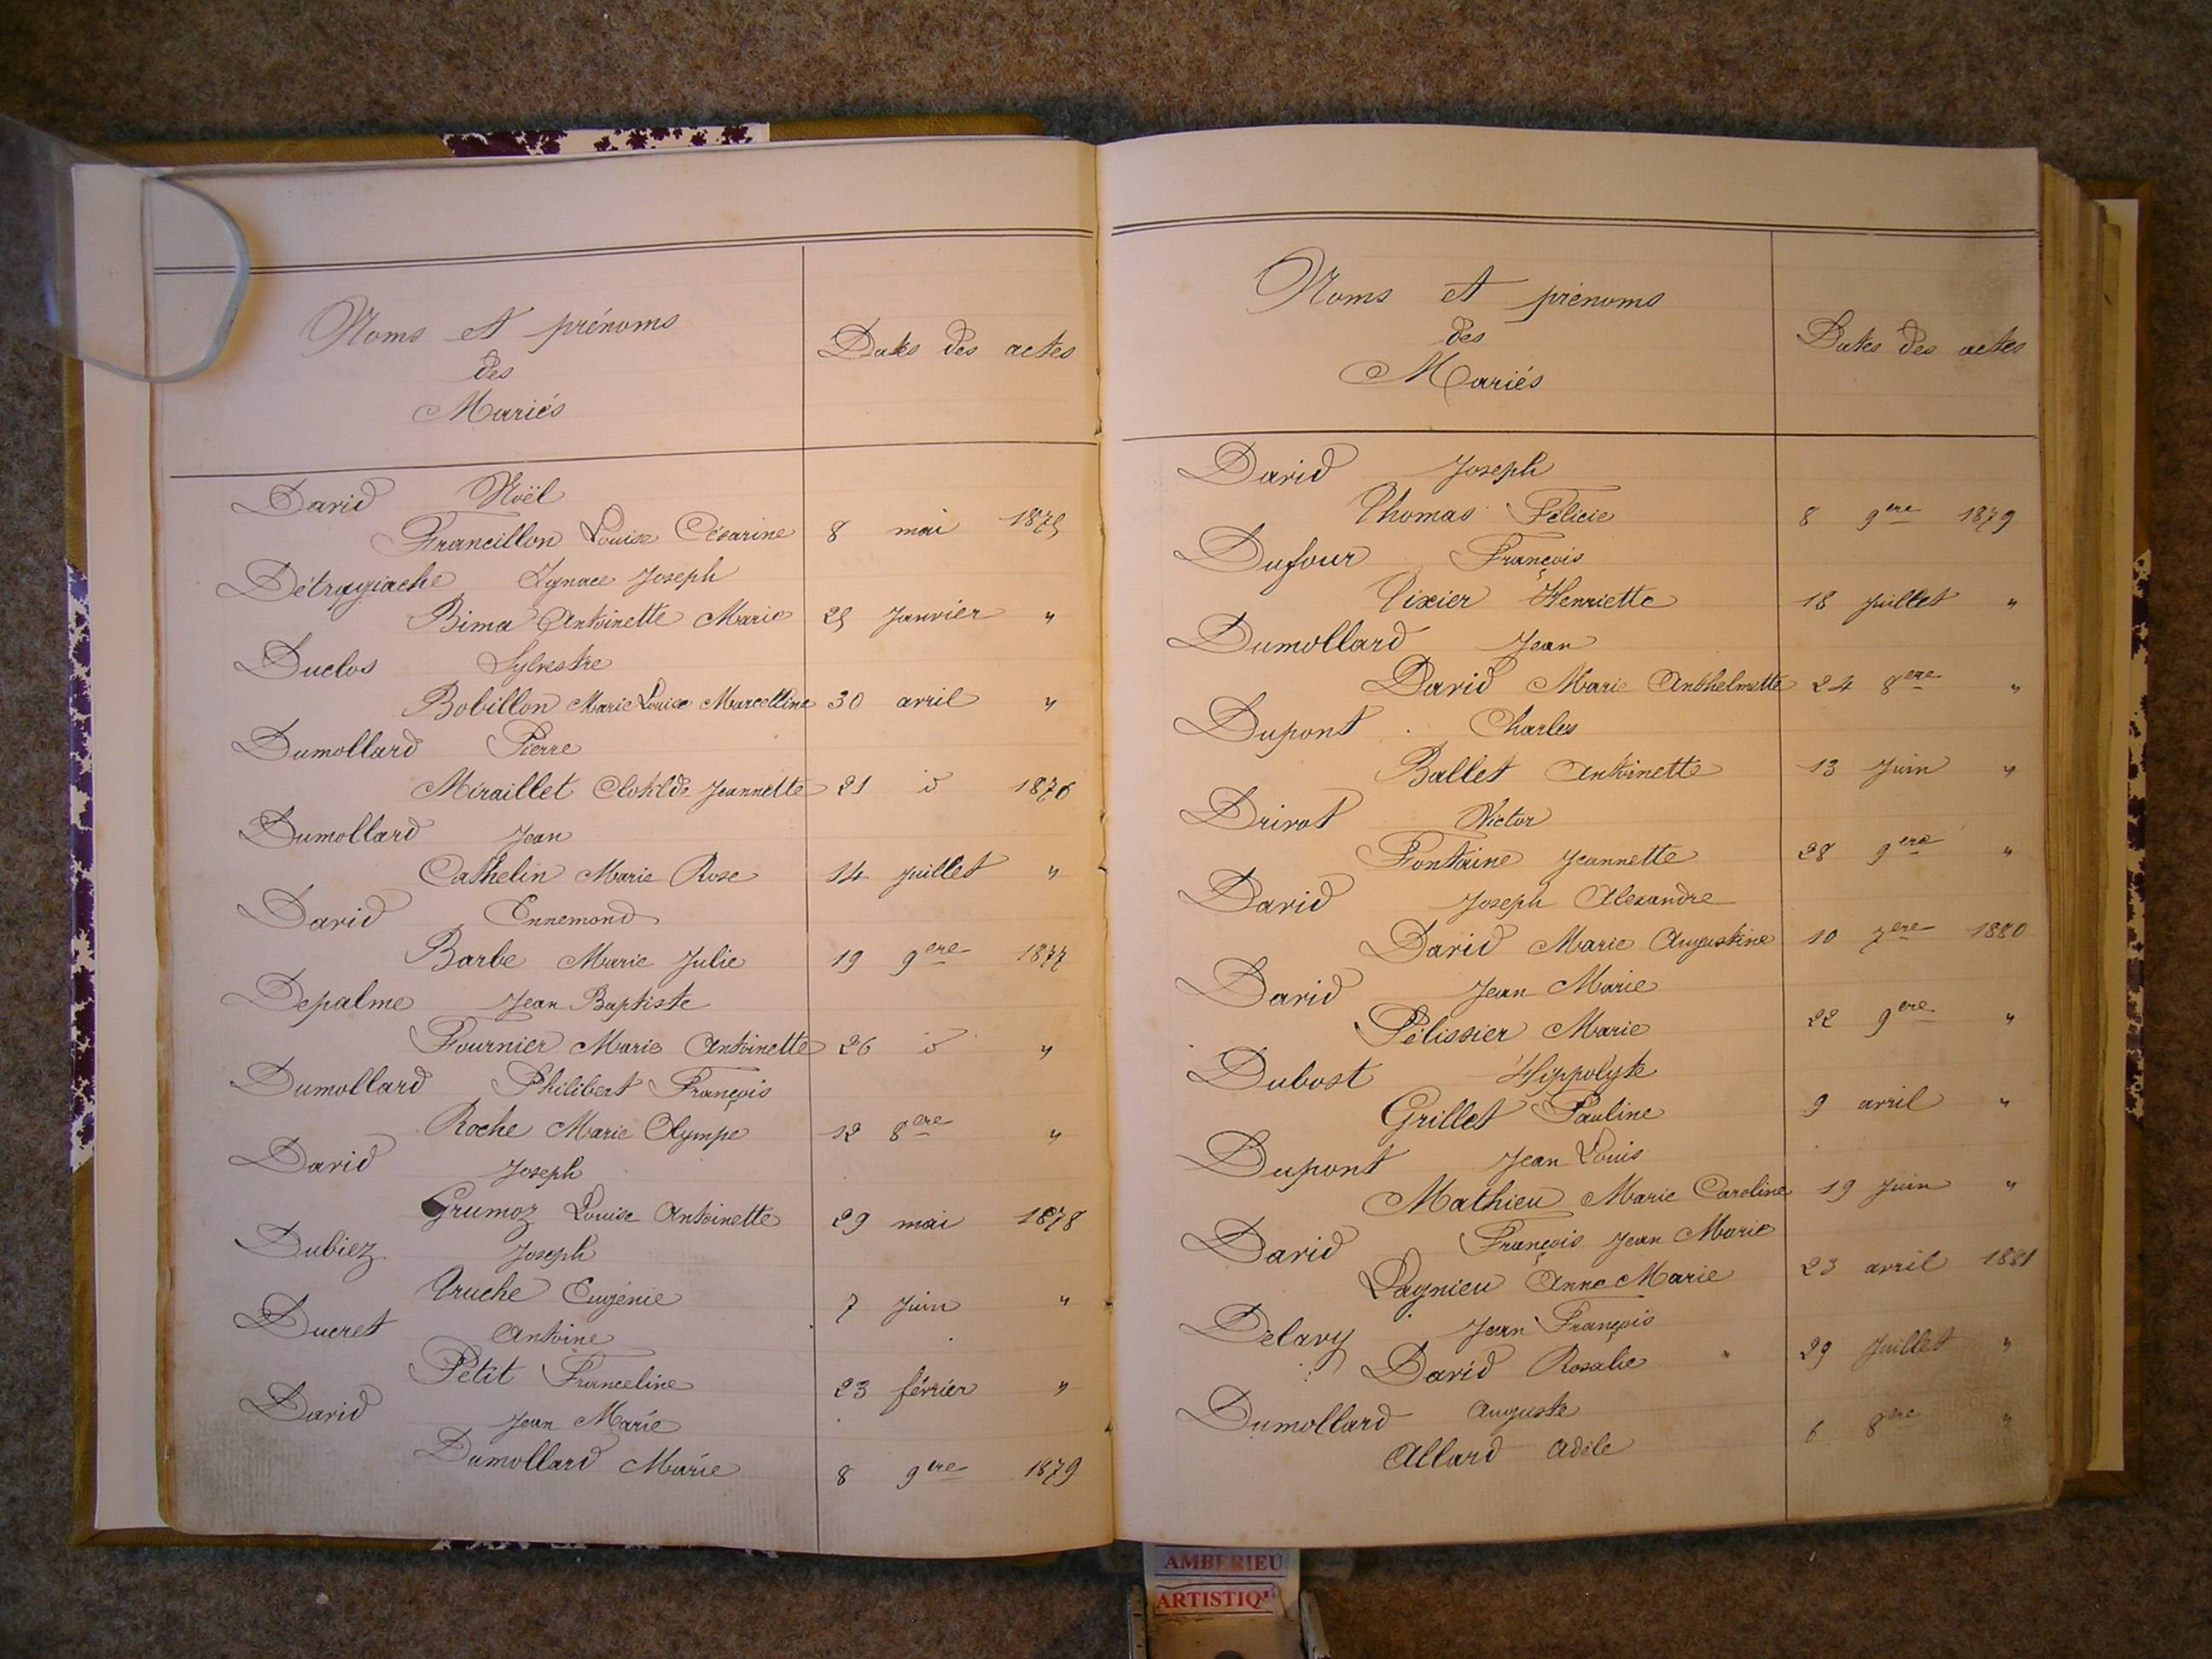 Noms et prénoms
des
Mariés
Dates des actes
David Noël
Francillon Louise Césarine 8 mai 1875
Détrayiache Ignace Joseph
Bima Antoinette Marie 25 Janvier "
Duclos Sylvestre
Bobillon Marie Louise Marcelline 30 avril "
Dumollard Pierre
Miraillet Clotilde Jeannette 21 d 1876
Dumollard Jean
Cathelin Marie Rose 14 Juillet "
David Ennemond
Barbe Marie Julie 19 9ere 1877
Depalme Jean Baptiste
Fournier Marie Antoinette 26 d "
Dumollard Philibert François
Roche Marie Olympe 12 8ere "
David Joseph
Grumoz Louise Antoinette 29 mai 1878
Dubiez Joseph
Truche Eugénie 7 Juin "
Ducret Antoine
Petit Franceline 23 février "
David Jean Marie
Dumollard Marie 8 9ere 1879
Noms et prénoms
des
Mariés
Dates des actes
David Joseph
Thomas Félicie 8 9ere 1879
Dufour François
Tixier Henriette 18 Juillet "
Dumollard Jean
David Marie Anthelmette 24 8ere "
Dupont Charles
Ballet Antoinette 13 Juin "
Drivot Victor
Fontaine Jeannette 28 9ere "
David Joseph Alexandre
David Marie Augustine 10 7ere 1880
David Jean Marie
Pélissier Marie 22 9ere "
Dubost Hippolyte
Grillet Pauline 9 avril "
Dupont Jean Louis
Mathieu Marie Caroline 19 Juin "
David François Jean Marie
Lagnieu Anne Marie 23 avril 1881
Delavy Jean François
David Rosalie 29 Juillet "
Dumollard Auguste
Allard Adèle 6 8ere "
AMBERIEU
ARTISTIQ